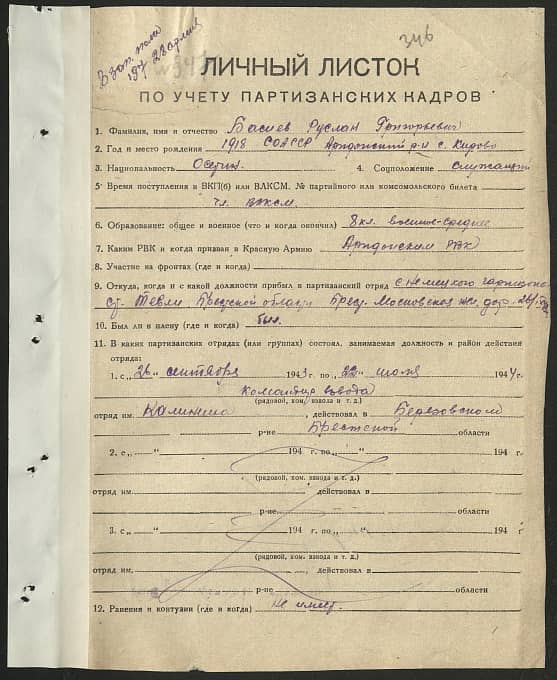 346
В зап. полк
197 28 армии
ЛИЧНЫЙ ЛИСТОК
ПО УЧЕТУ ПАРТИЗАНСКИХ КАДРОВ
1. Фамилия, имя и отчество Басиев Руслан Григорьевич
2. Год и место рождения 1918 СОАССР Ардонский р-н с. Кадово
3. Национальность Осетин 4. Соцположение служащий
5. Время поступления в ВКП(б) или ВЛКСМ. № партийного или комсомольского билета
чл. ВЛКСМ.
6. Образование: общее и военное (что и когда окончил) 8 кл. военное-среднее
7. Каким РВК и когда призван в Красную Армию Ардонским РВК
8. Участие на фронтах (где и когда)
9. Откуда, когда и с какой должности прибыл в партизанский отряд с немецкого гарнизона
ст. Тевли Брестской области Брест. Московская жел. дор. 26/
10. Был ли в плену (где и когда) был.
11. В каких партизанских отрядах (или группах) состоял, занимаемая должность и район действия
отряда:
1. с „26" сентября 1943 г. по „22" июля 1944 г.
командир взвода
(рядовой, ком. взвода и т. д.)
отряд им. Калинина, действовал в Березовском
р-не Брестской области
2. с „ " 194 г. по „ " 194 г.
(рядовой, ком. взвода и т. д.)
отряд им. действовал в
р-не области
3. с „ " 194 г. по „ " 194 г
(рядовой, ком. взвода и т. д.)
отряд им. , действовал в
р-не области
12. Ранения и контузии (где и когда) не имеет.